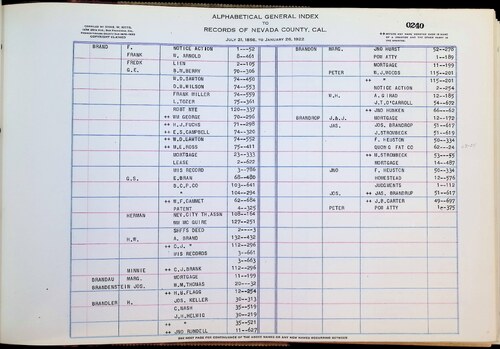 ALPHABETICAL GENERAL INDEX
TO
RECORDS OF NEVADA COUNTY, CAL.
JULY 21, 1856, TO JANUARY 26, 1922
0240
COPYRIGHT CLAIMED
BRAND F. NOTICE ACTION 1---52
FRANK W. ARNOLD 8--461
FREDK LIEN 2--105
G.E. B.W.BERRY 70--306
W.D.DAWSON 74--450
B.D.WILSON 74--553
FRANK MILLER 74--559
L.TOFER 75--361
MORT NYE 120--337
++ WM GEORGE 70--296
++ H.J.FUCHS 71--298
++ E.S.CAMPBELL 74--320
++ W.D.LAWTON 74--552
++ M.E.ROSS 75--411
MORTGAGE 23--333
LEASE 2--622
MIS RECORD 3--796
G.S. E.BRAN 68--480
B.C.F.CO 103--641
" 104--294
++ W.F.CARNET 62--684
PATENT 4--325
HERMAN NEV.CITY TH.ASSN 108--164
WM MC GUIRE 127--251
SHFFS DEED 2---3
H.W. A. BRAND 132--432
++ C.J. " 112--296
MIS RECORDS 3--661
3--663
MINNIE ++ C.J.BRANK 112--296
BRANDAU MARG. MORTGAGE 11--199
BRANDENSTEIN JOS. W.M.THOMAS 20---32
++ H.M.FLAGG 12--254
BRANDLER H. JOS. KELLER 30--313
C.NASH 35--519
J.H.HELWIG 30--219
++ " 35--521
++ JNO RUNDELL 11--627
BRANDON MARG. JNO HURST 52--278
POW ATTY 1--189
MORTGAGE 11--199
PETER W.J.WOODS 115--201
++ " 115--201
NOTICE ACTION 2--254
W.H. A.GIRAD 12--185
J.T.O'CARROLL 54--672
++ JNO HUNKEN 66---62
BRANDROP J.&J. MORTGAGE 12--172
JAS. JOS. BRANDROP 51--617
J.STROWBECK 51--619
F. HEUSTON 50--334
QUONG FAT CO 62---24
++ H.STROWBECK
MORTGAGE 14--487
JNO F. HEUSTON 50--334
HOMESTEAD 12--576
JUDGMENTS 1--119
JOS. ++ JAS. BRANDRUP 51--617
++ J.B.CARTER 49--697
PETER POW ATTY